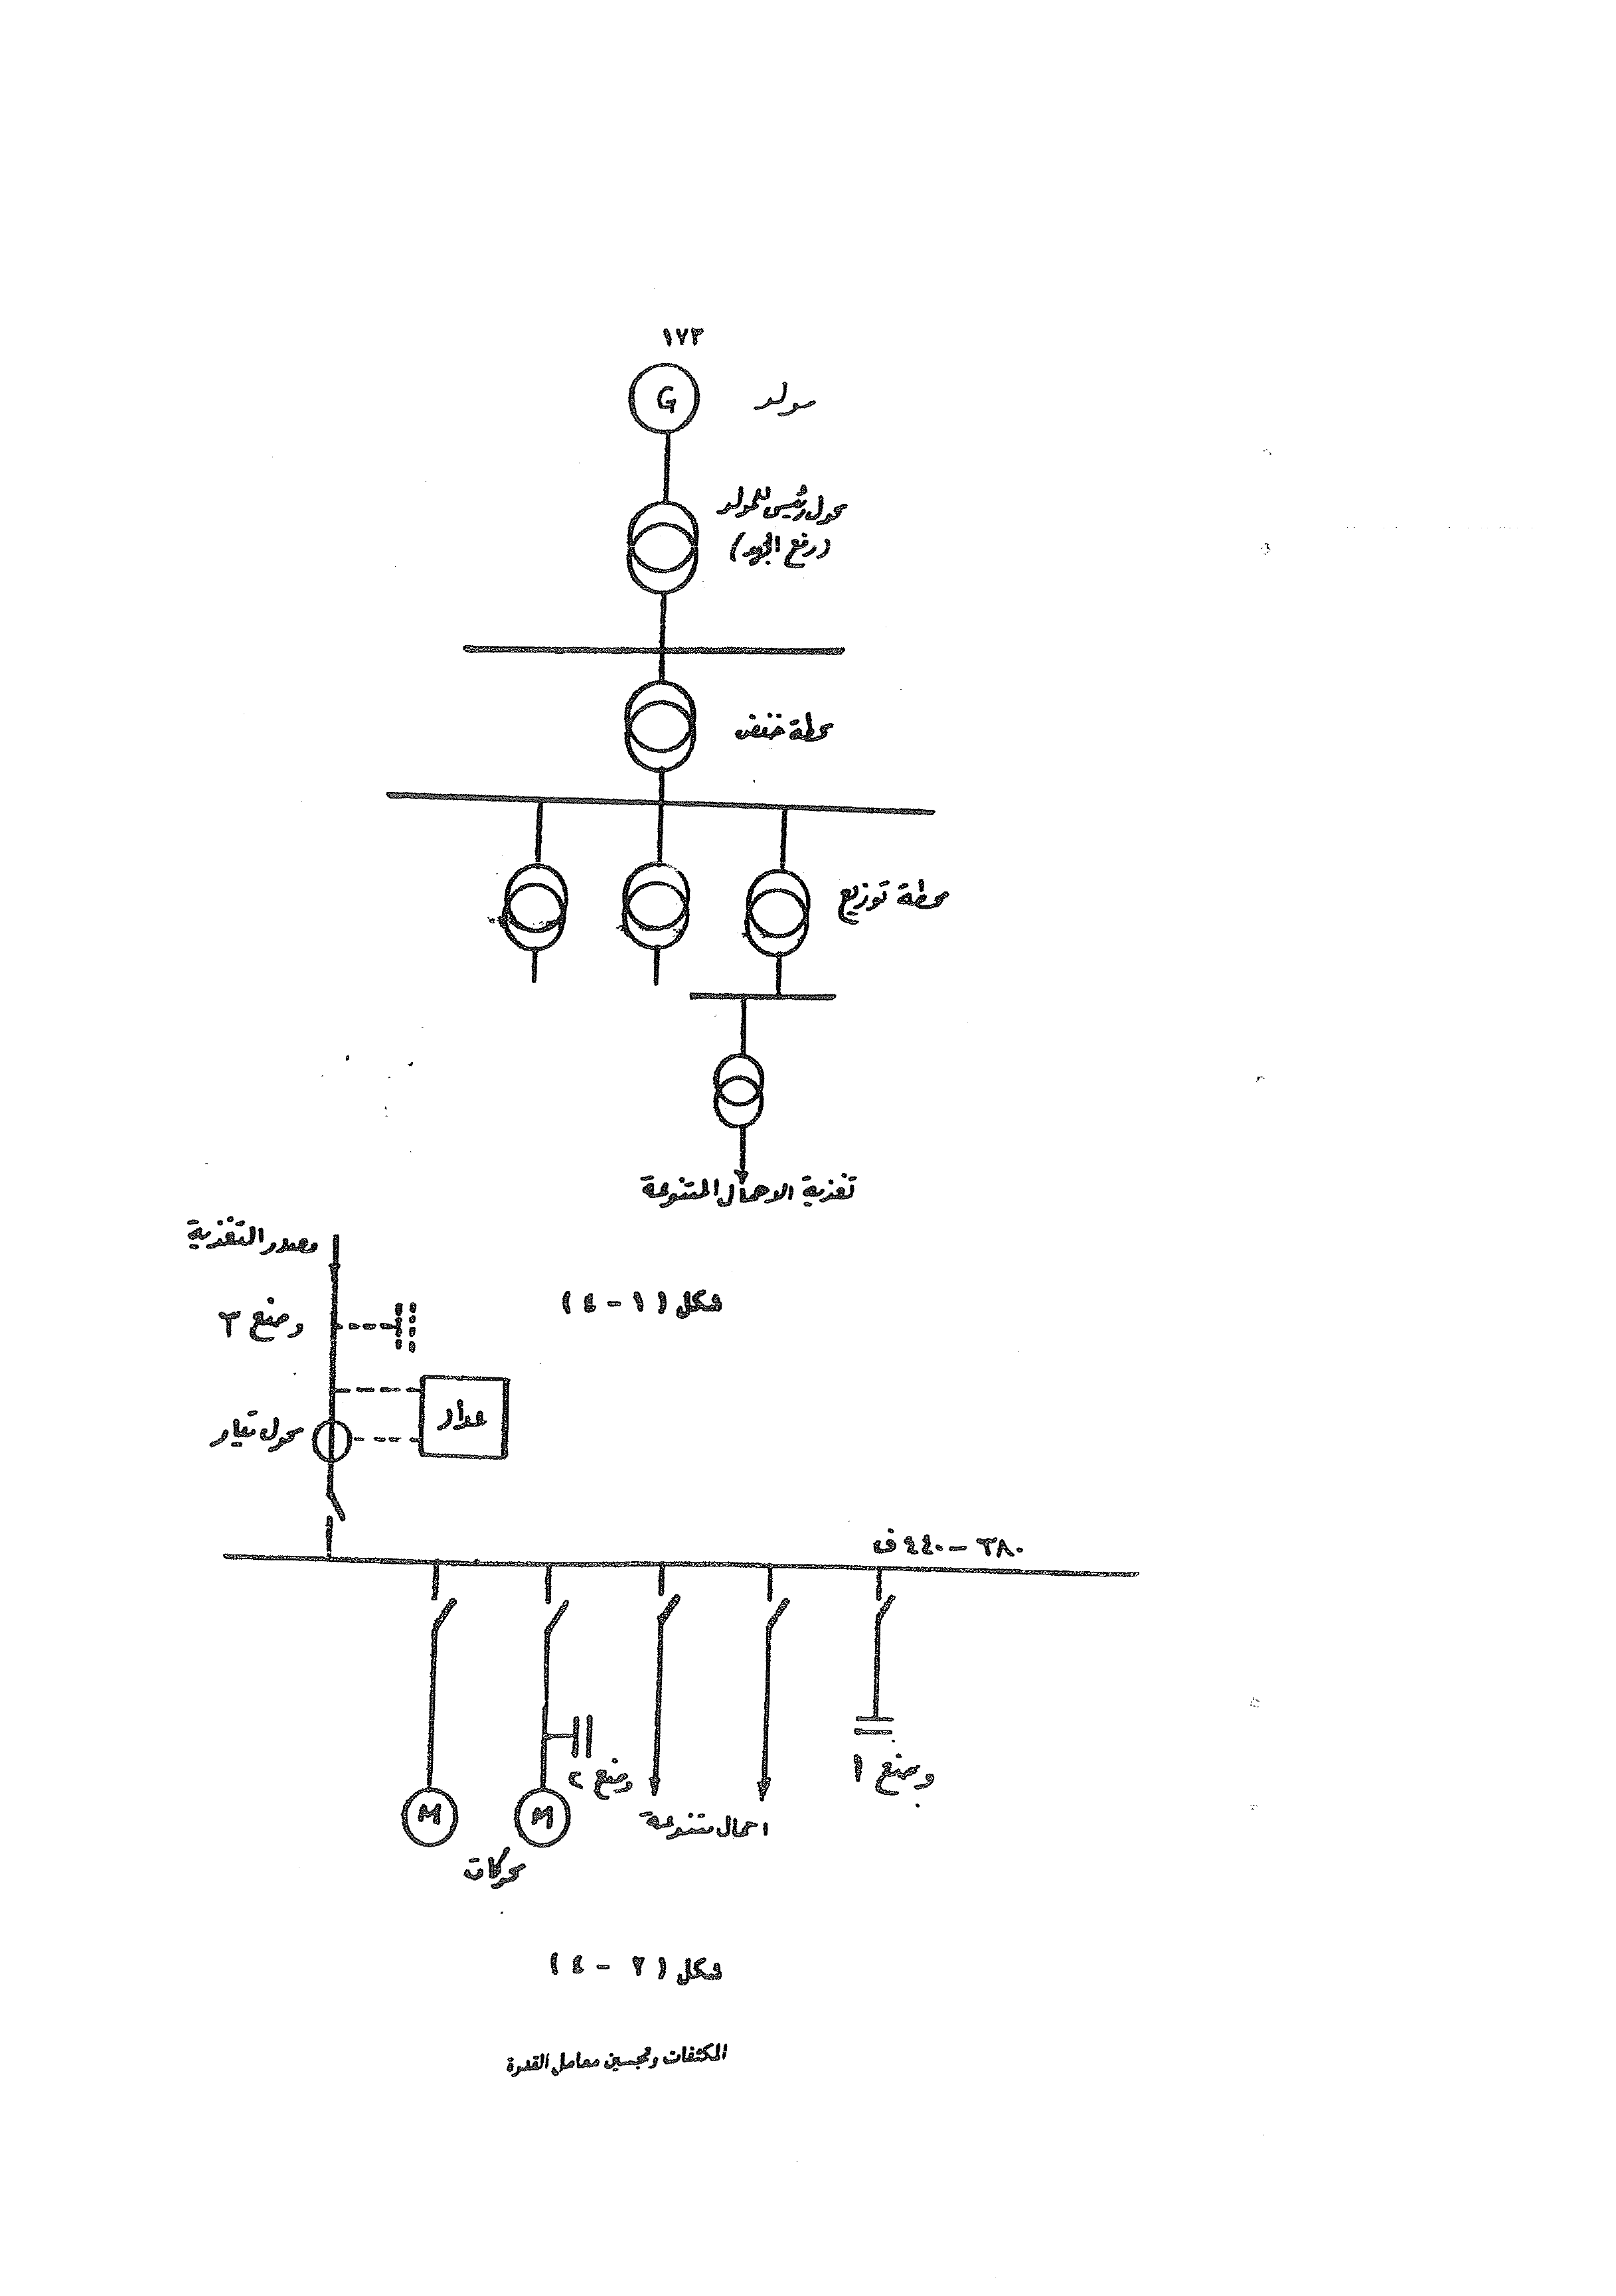 ١٧٣
G
مولد
محول رئيسى للمولد
(رفع الجهد)
محطة خفض
محطة توزيع
تغذية الاحمال المتنوعة
شكل (١ - ٤)
مصدر التغذية
وضع ٣
عداد
محول تيار
٣٨٠ - ٤٤٠ ف
وضع ١
وضع ٢
M
M
احمال متنوعة
محركات
شكل (٢ - ٤)
المكثفات وتحسين معامل القدرة